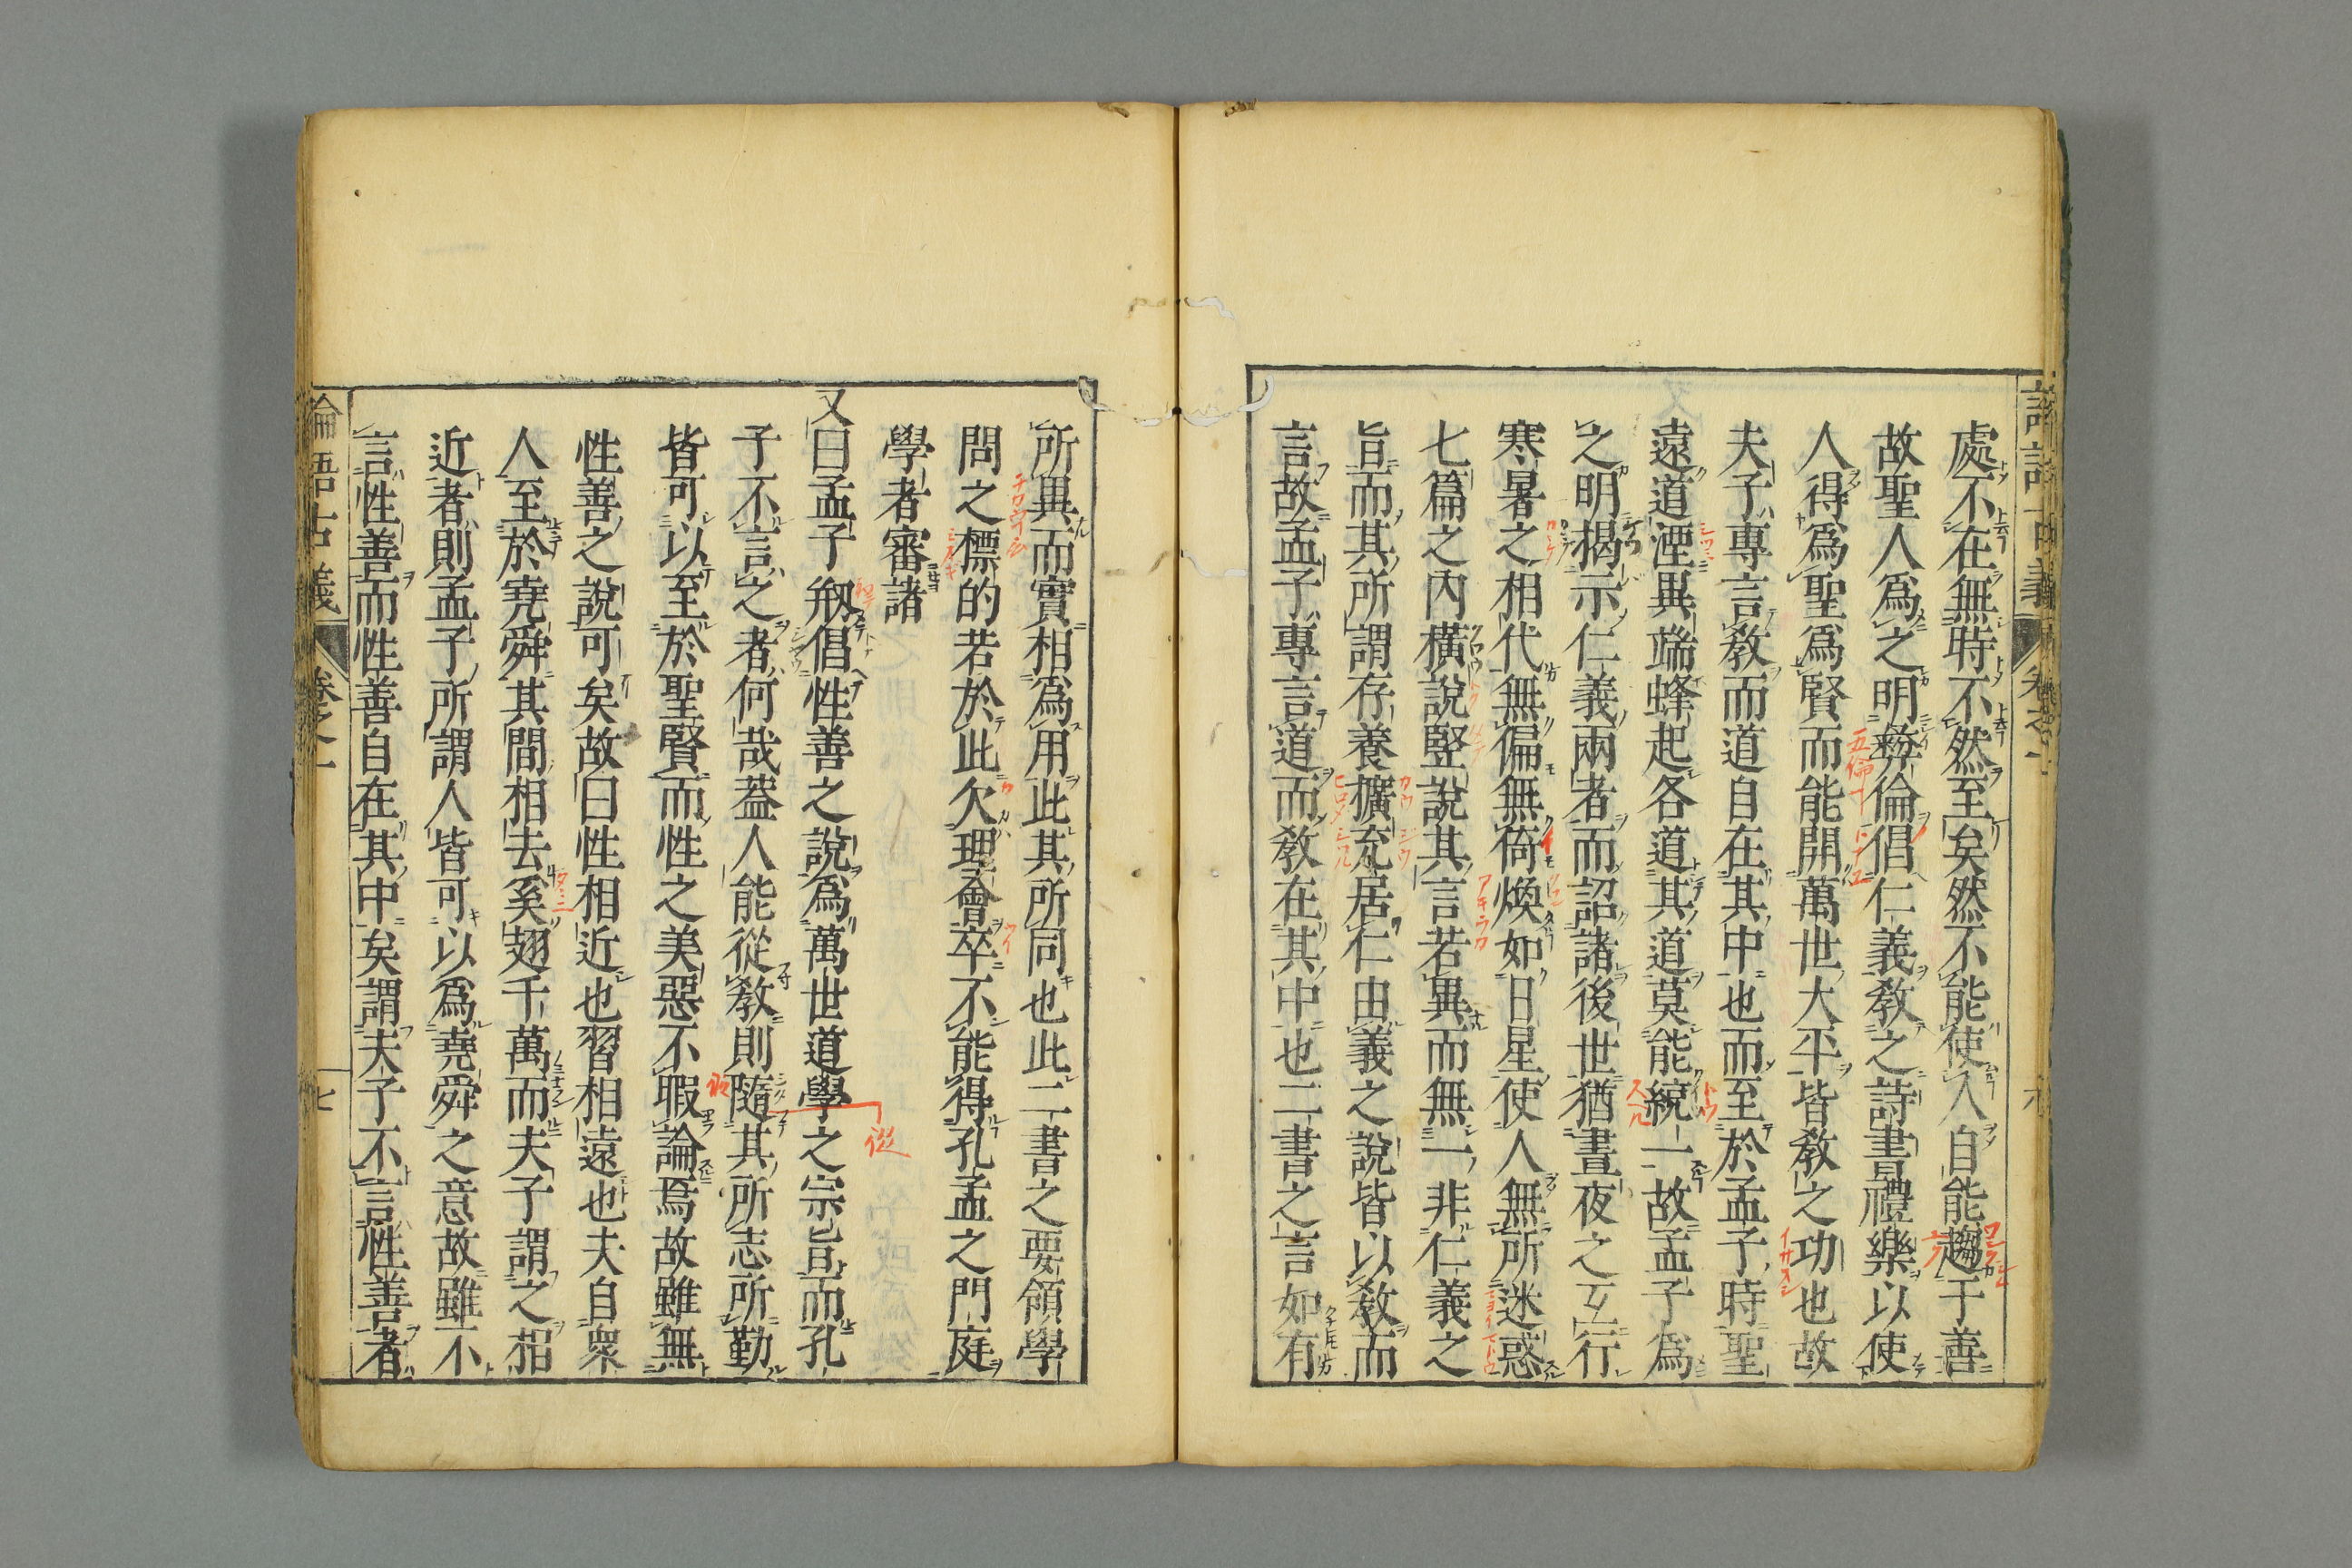 處不在無時不然至矣然不能使人自能趨于善
故聖人爲之明彜倫倡仁義教之詩書禮樂以使
人得爲聖爲賢而能開萬世大平皆教之功也故
夫子專言教而道自在其中也而至於孟子時聖
遠道湮異端蜂起各道其道莫能統一故孟子爲
之明揭示仁義兩者而詔諸後世猶晝夜之互行
寒暑之相代無偏無倚煥如日星使人無所迷惑
七篇之内横說竪說其言若異而無一非仁義之
旨而其所謂存養擴充居仁由義之說皆以教而
言故孟子專言道而教在其中也二書之言如有
所異而實相爲用此其所同也此二書之要領學
問之標的若於此欠理會卒不能得孔孟之門庭
學者審諸
又曰孟子剏倡性善之說爲萬世道學之宗旨而孔
子不言之者何哉蓋人能從教則隨其所志所勤
皆可以至於聖賢而性之美惡不暇論焉故雖無
性善之說可矣故曰性相近也習相遠也夫自衆
人至於堯舜其間相去奚翅千萬而夫子謂之相
近者則孟子所謂人皆可以爲堯舜之意故雖不
言性善而性善自在其中矣謂夫子不言性善者
論語古義
卷之一
七